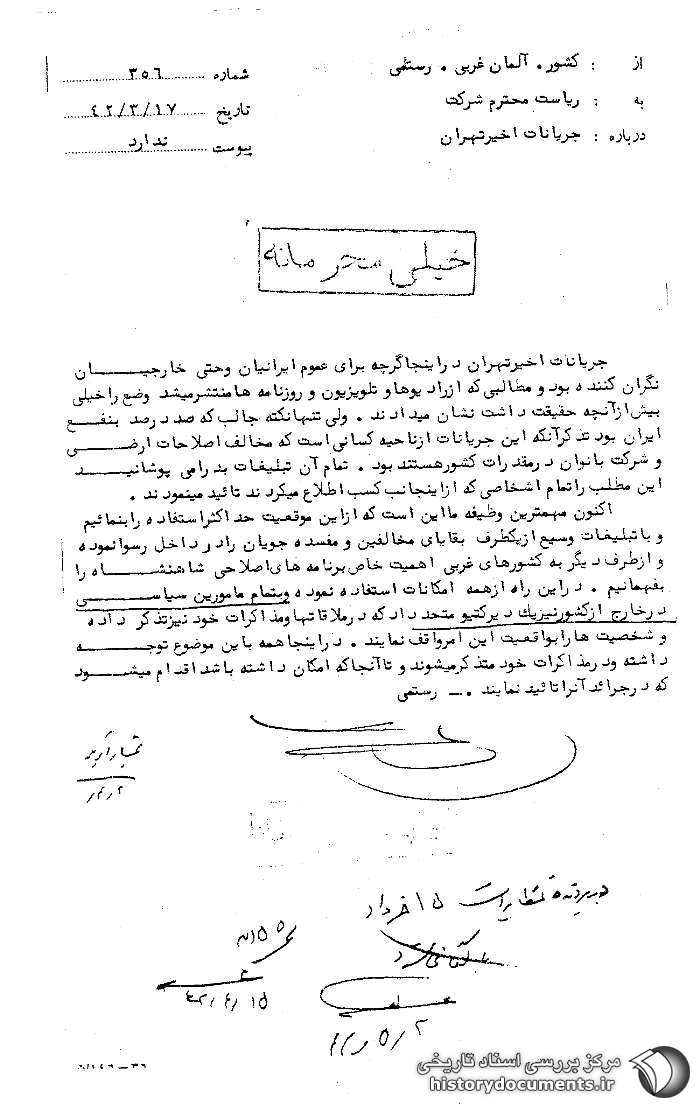 از : کشور . آلمان غربی . رستمی
شماره ۳۵۶
به : ریاست محترم شرکت
تاریخ ۴۲/۳/۱۷
درباره : جریانات اخیر تهران
پیوست ندارد
خیلی محرمانه
جریانات اخیر تهران در اینجا گرچه برای عموم ایرانیان وحتی خارجیان
نگران کننده بود و مطالبی که از رادیوها و تلویزیون و روزنامه ها منتشر میشد وضع را خیلی
بیش از آنچه حقیقت داشت نشان میدادند . ولی تنها نکته جالب که صد در صد بنفع
ایران بود تذکر آنکه این جریانات از ناحیه کسانی است که مخالف اصلاحات ارضی
و شرکت بانوان در مقدرات کشور هستند بود . تمام آن تبلیغات بد را می پوشانید
این مطلب را تمام اشخاصی که از اینجانب کسب اطلاع میکردند تائید مینمودند .
اکنون مهمترین وظیفه ما این است که از این موقعیت حد اکثر استفاده را بنمائیم
و با تبلیغات وسیع از یکطرف بقایای مخالفین و مفسده جویان را در داخل رسوا نموده
و از طرف دیگر به کشورهای غربی اهمیت خاص برنامه های اصلاحی شاهنشاه را
بفهمانیم . در این راه از همه امکانات استفاده نموده و بتمام مامورین سیاسی
در خارج از کشور نیز یک دیرکتیو متحد داد که در ملاقاتها و مذاکرات خود نیز تذکر داده
و شخصیت ها را بواقعیت این امر واقف نمایند . در اینجا همه باین موضوع توجه
داشته و در مذاکرات خود متذکر میشوند و تا آنجا که امکان داشته باشد اقدام میشود
که در جرائد آنرا تائید نمایند .ــ رستمی
۱۵ خرداد
بایگانی شود
۴۲/۴/۱۵
۳۶ــ۵/۱۴۶
مرکز بررسی اسناد تاریخی
historydocuments.ir